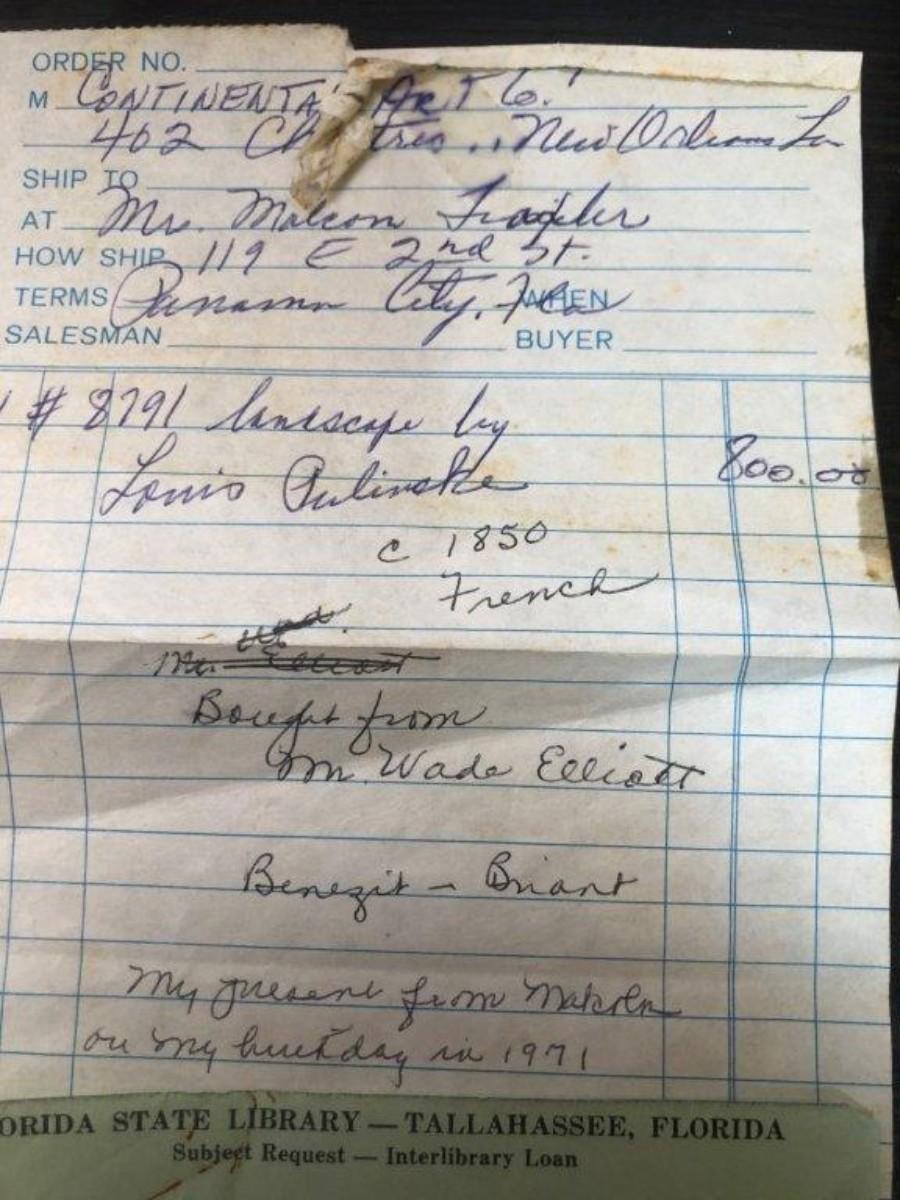 ORDER NO.
M CONTINENTA Art Co.
402 Ch tres .. New Orleans La
SHIP TO
AT Mr. Malcom
HOW SHIP 119 E 2nd St.
TERMS Panama City, Fla WHEN
SALESMAN BUYER
# 8791 landscape by
Louis 800.00
c 1850
French
Mr. Elliott
Bought from
Mr. Wade Elliott
Benezit - Briant
My present from Malcolm
on my birthday in 1971
ORIDA STATE LIBRARY — TALLAHASSEE, FLORIDA
Subject Request — Interlibrary Loan